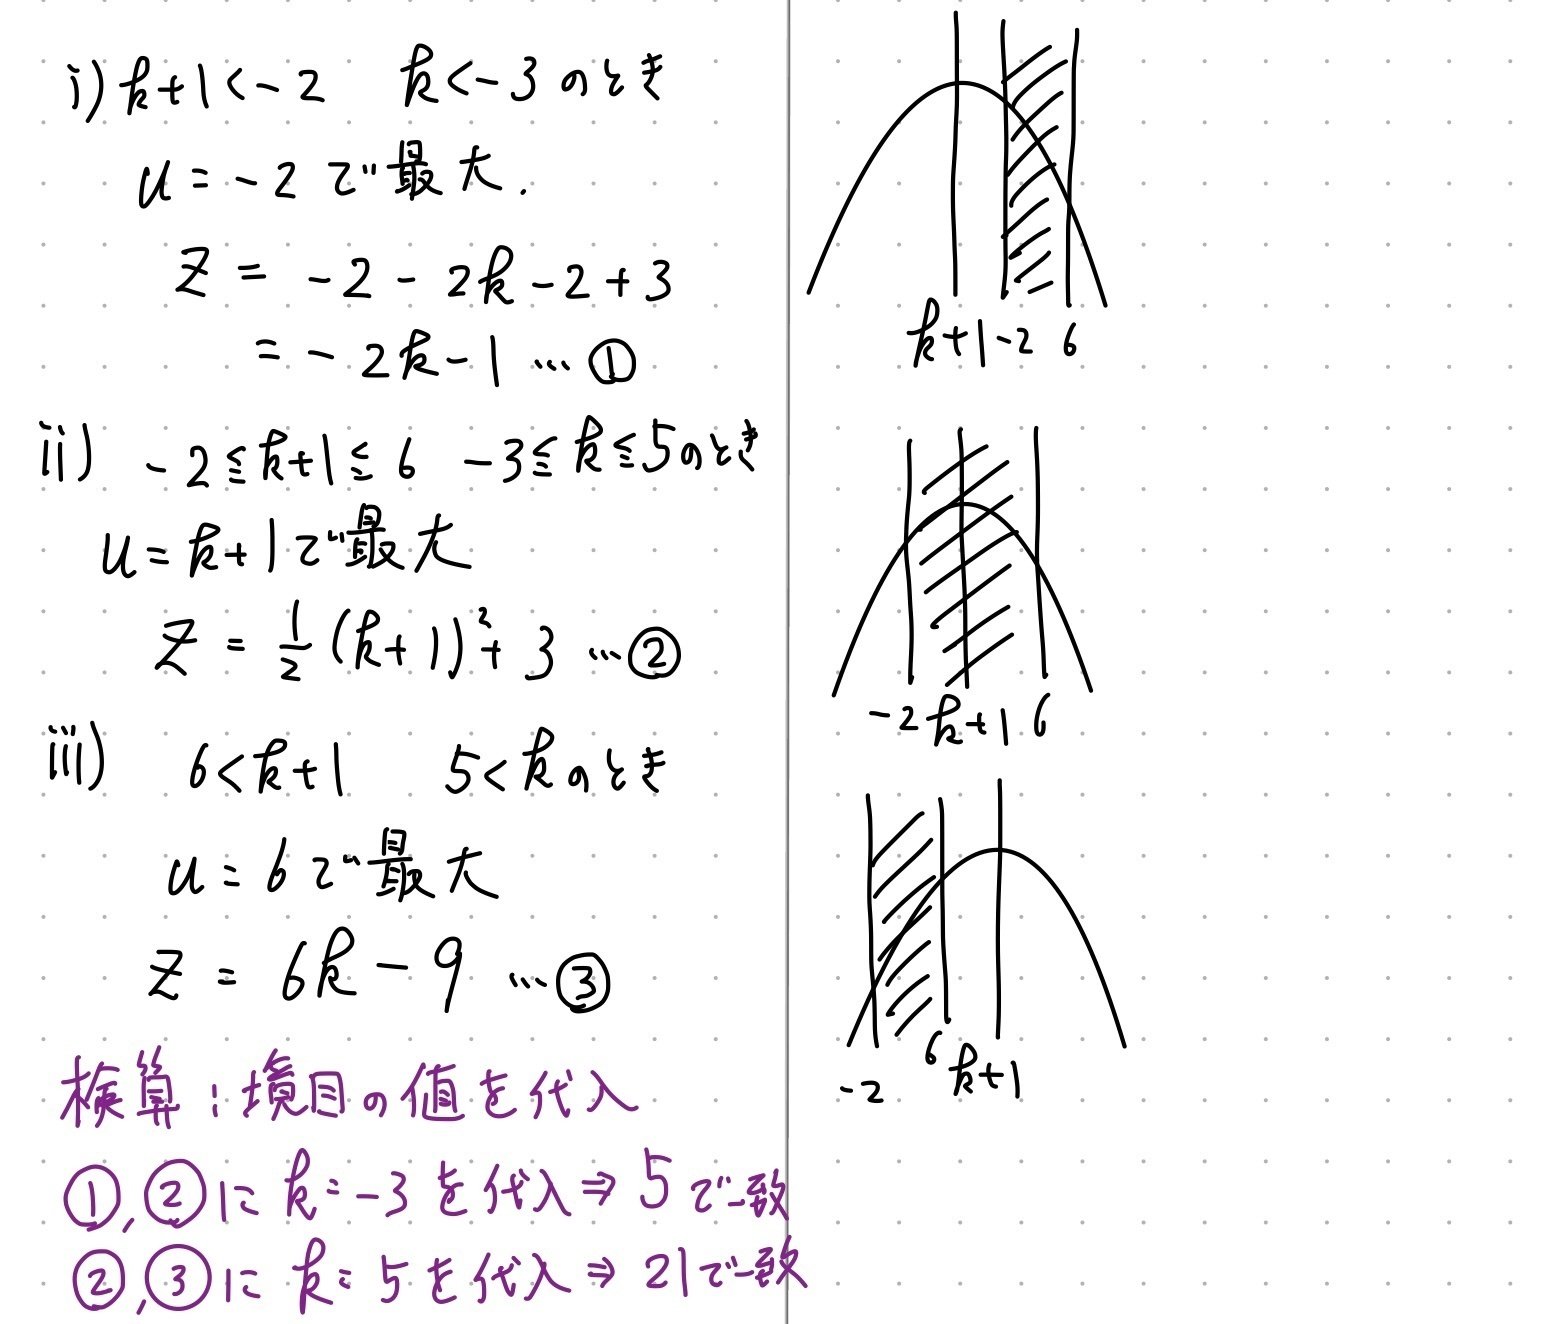 i) k+1<-2 k<-3のとき
u=-2で最大.
z = -2-2k-2+3
= -2k-1 … ①
ii) -2≦k+1≦6 -3≦k≦5のとき
u=k+1で最大
z = 1/2 (k+1)²+3 … ②
iii) 6<k+1 5<kのとき
u=6で最大
z = 6k-9 … ③
検算:境目の値を代入
①,②にk=-3を代入⇒5で一致
②,③にk=5を代入⇒21で一致
k+1 -2 6
-2 k+1 6
-2 6 k+1